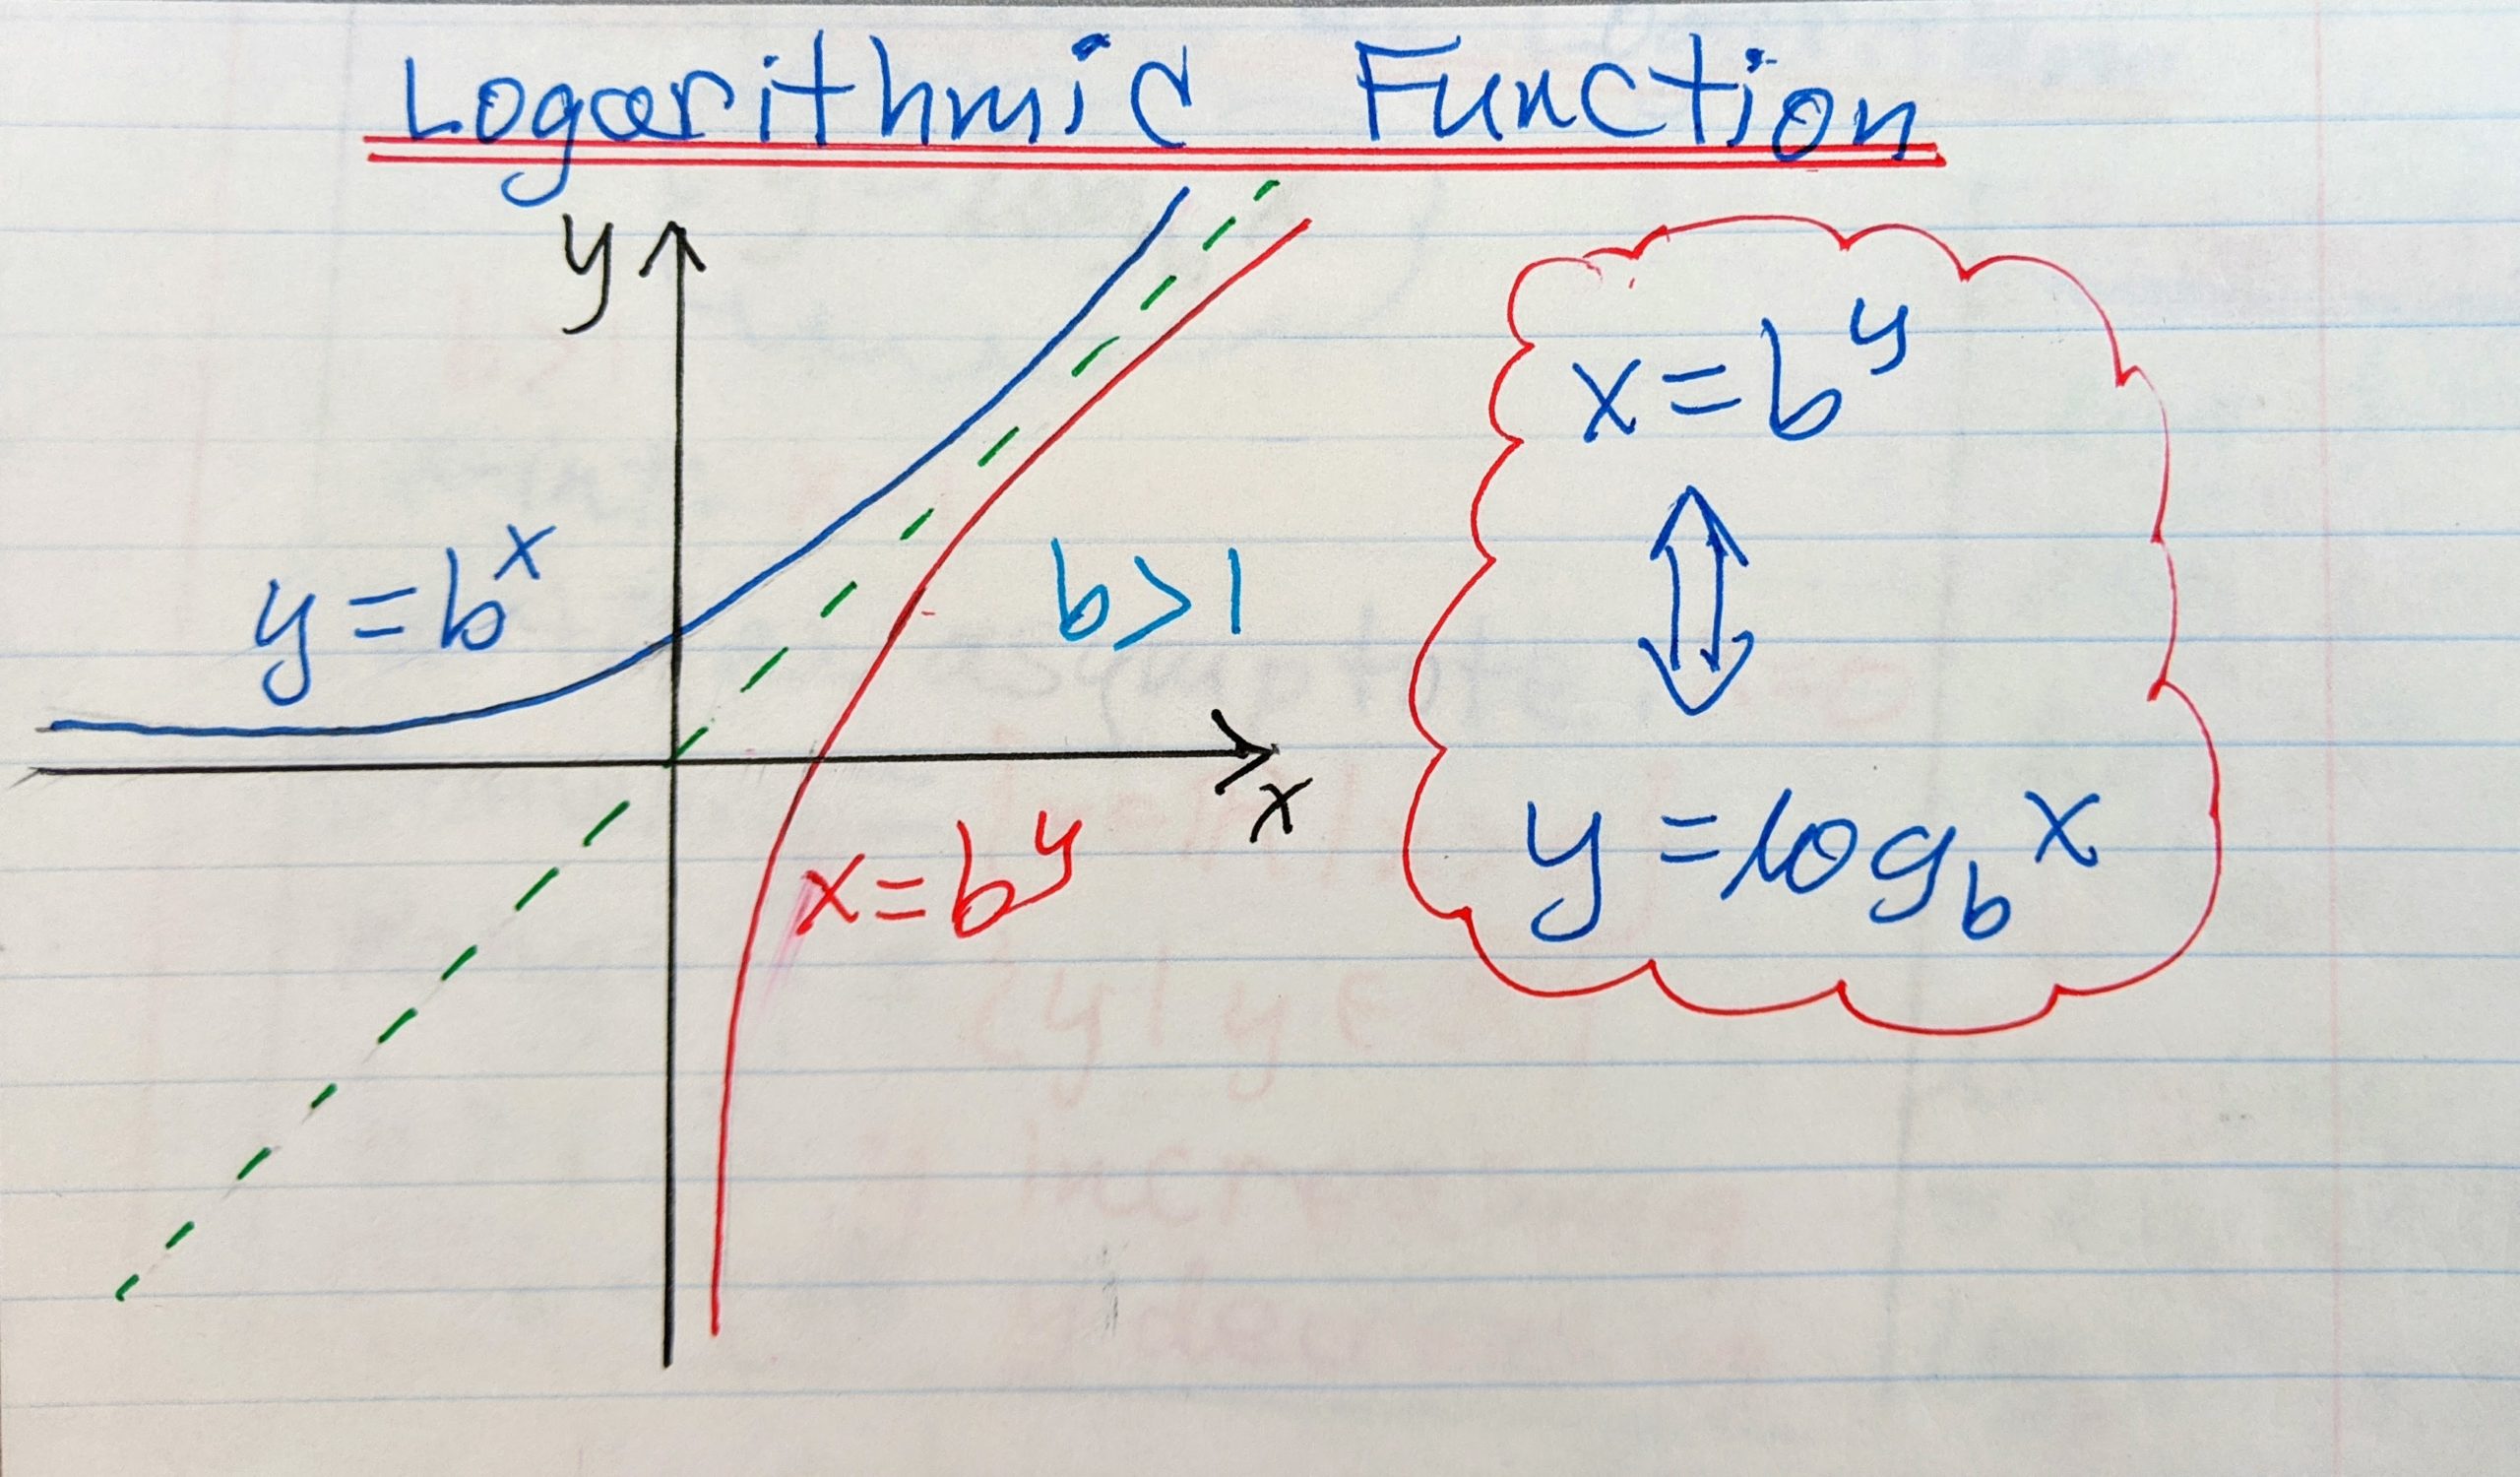 Logarithmic Function
y
y = b^x
b > 1
x
x = b^y
x = b^y
⇕
y = log_b x